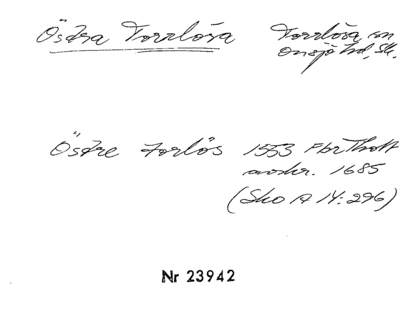 Östra Torrlösa Torrlösa sn
Onsjö hd, Sk.
Östre torlös 1553 Fbr Thott
avskr. 1685
(Sko A 14:296)
Nr 23942